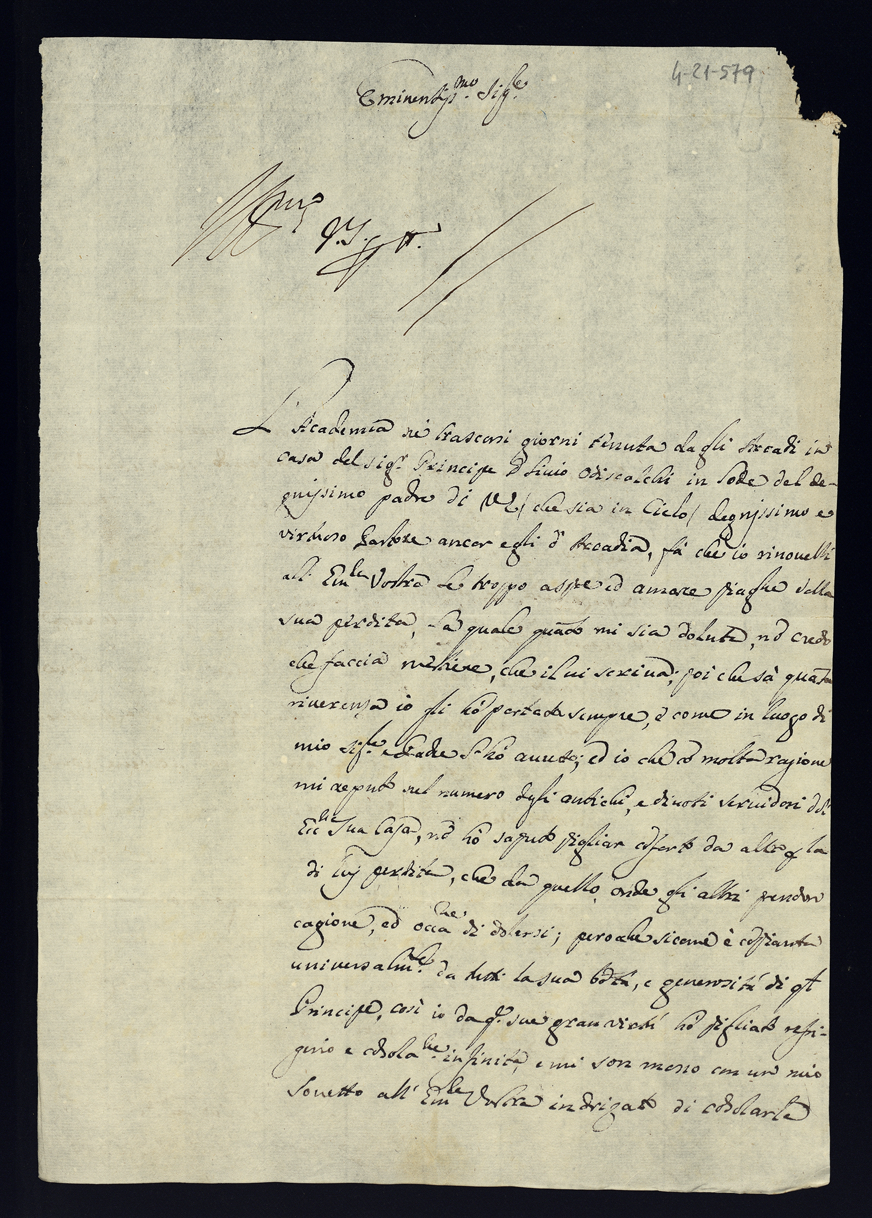 4-21-579
Eminentiss.mo Sig.re
L'Accademia nè trascorsi giorni tenuta dagli Arcadi in
casa del Sig.r Principe D. Livio Odiscalchi in Lode del de-
gnissimo padre di VE/ che sia in Cielo/ degnissimo e
virtuoso Pastore ancor egli d'Arcadia, fà che io rinovelli
all' Em.za Vostra le troppo aspre ed amare piaghe della
sua perdita, la quale quãto mi sia doluta, nõ credo
che faccia mestiere, che il lui scriva; poi che sà quãta
riverenza io gli hò portata sempre, e come in luogo di
mio Sig.re e Padre l'hò avuto; ed io che cõ molta ragione
mi reputo nel numero degli antichi, e divoti servidori dell'
Ecc.ma Sua Casa, nõ hò saputo pigliar cõforto da altro p la
di lui perdita, che da quello, onde gli altri prendon
cagione, ed occa.ne di dolersi; peroche sicome è cõpianta
universalm.te da tutti la sua bõtà, e generosità di qsto
Principe, così io da q.te sue gran virtù hò pigliato refri-
gerio e cõsola.ne infinita, e mi son messo con un mio
Sonetto all' Em.za Vostra indrizato di cõsolarla